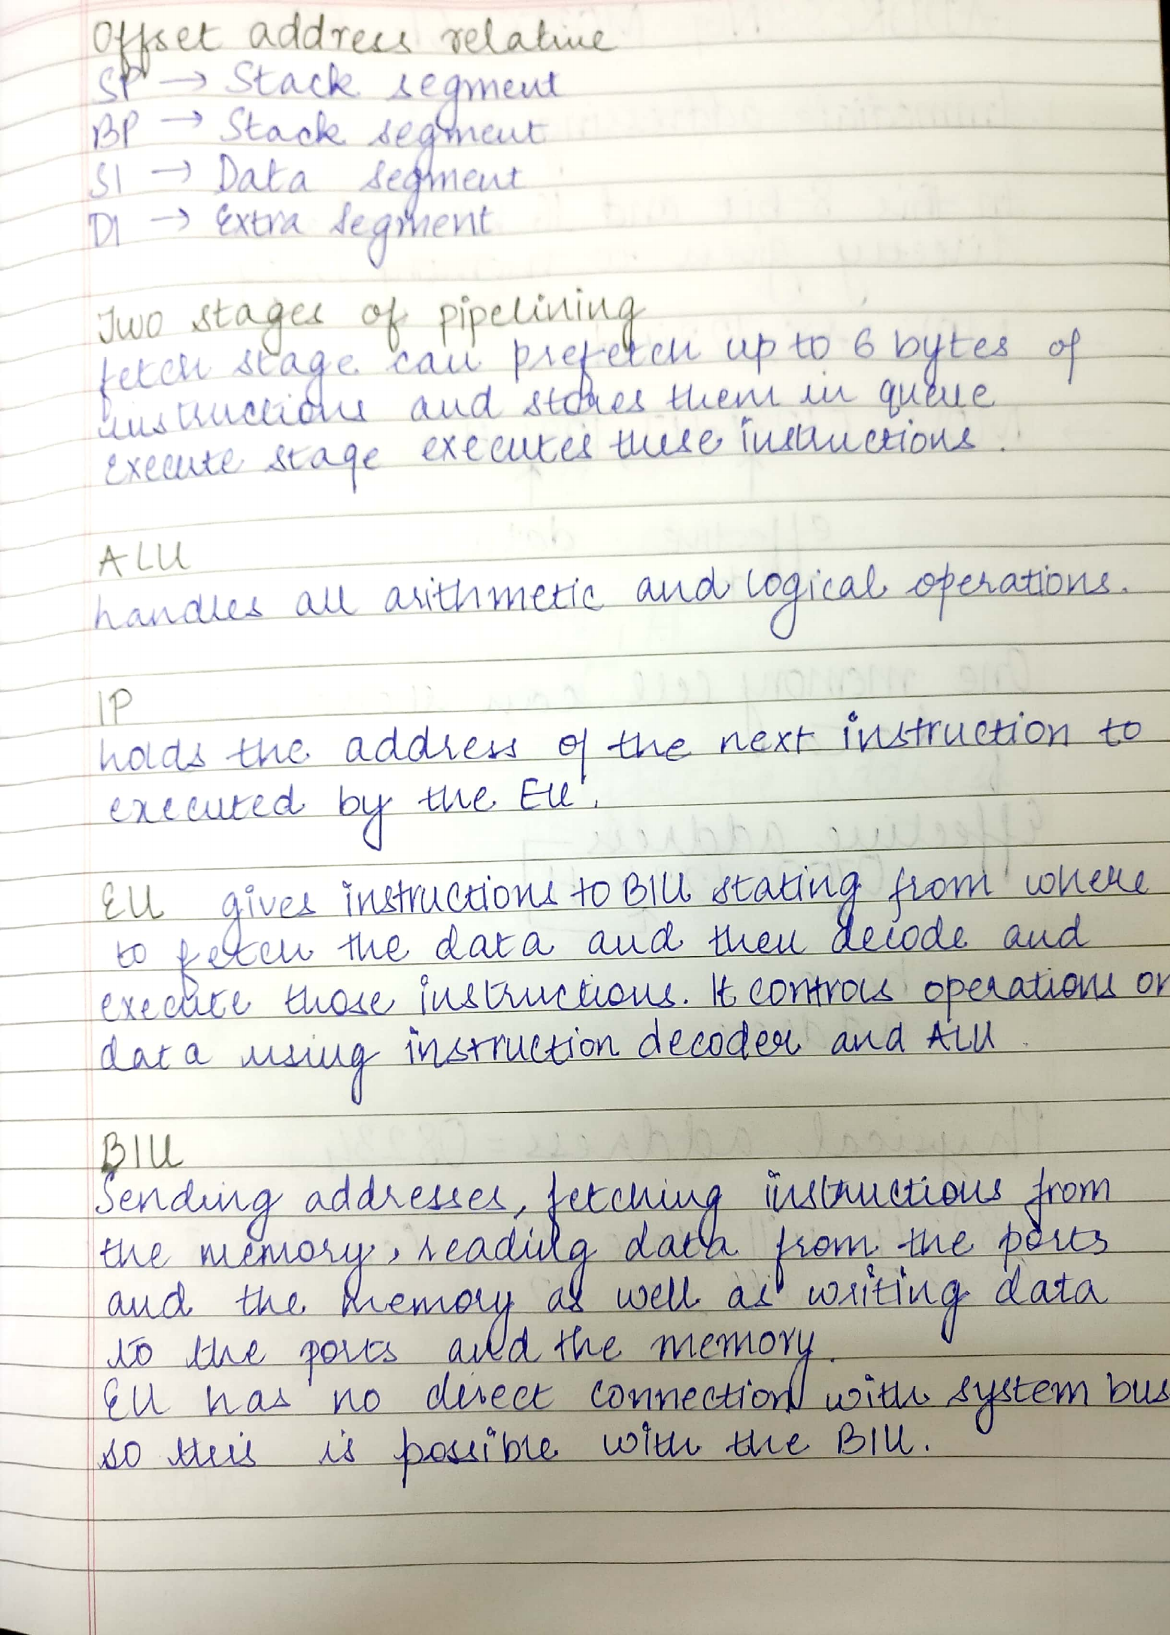 Offset address relative
SP → Stack segment
BP → Stack segment
SI → Data segment
DI → Extra segment
Two stages of pipelining
fetch stage can prefetch up to 6 bytes of
instructions and stores them in queue
execute stage executes these instructions.
ALU
handles all arithmetic and logical operations.
IP
holds the address of the next instruction to
executed by the EU.
EU gives instructions to BIU stating from where
to fetch the data and then decode and
execute those instructions. It controls operations on
data using instruction decoder and ALU.
BIU
Sending addresses, fetching instructions from
the memory, reading data from the ports
and the memory as well as writing data
to the ports and the memory.
EU has no direct connection with system bus
so this is possible with the BIU.